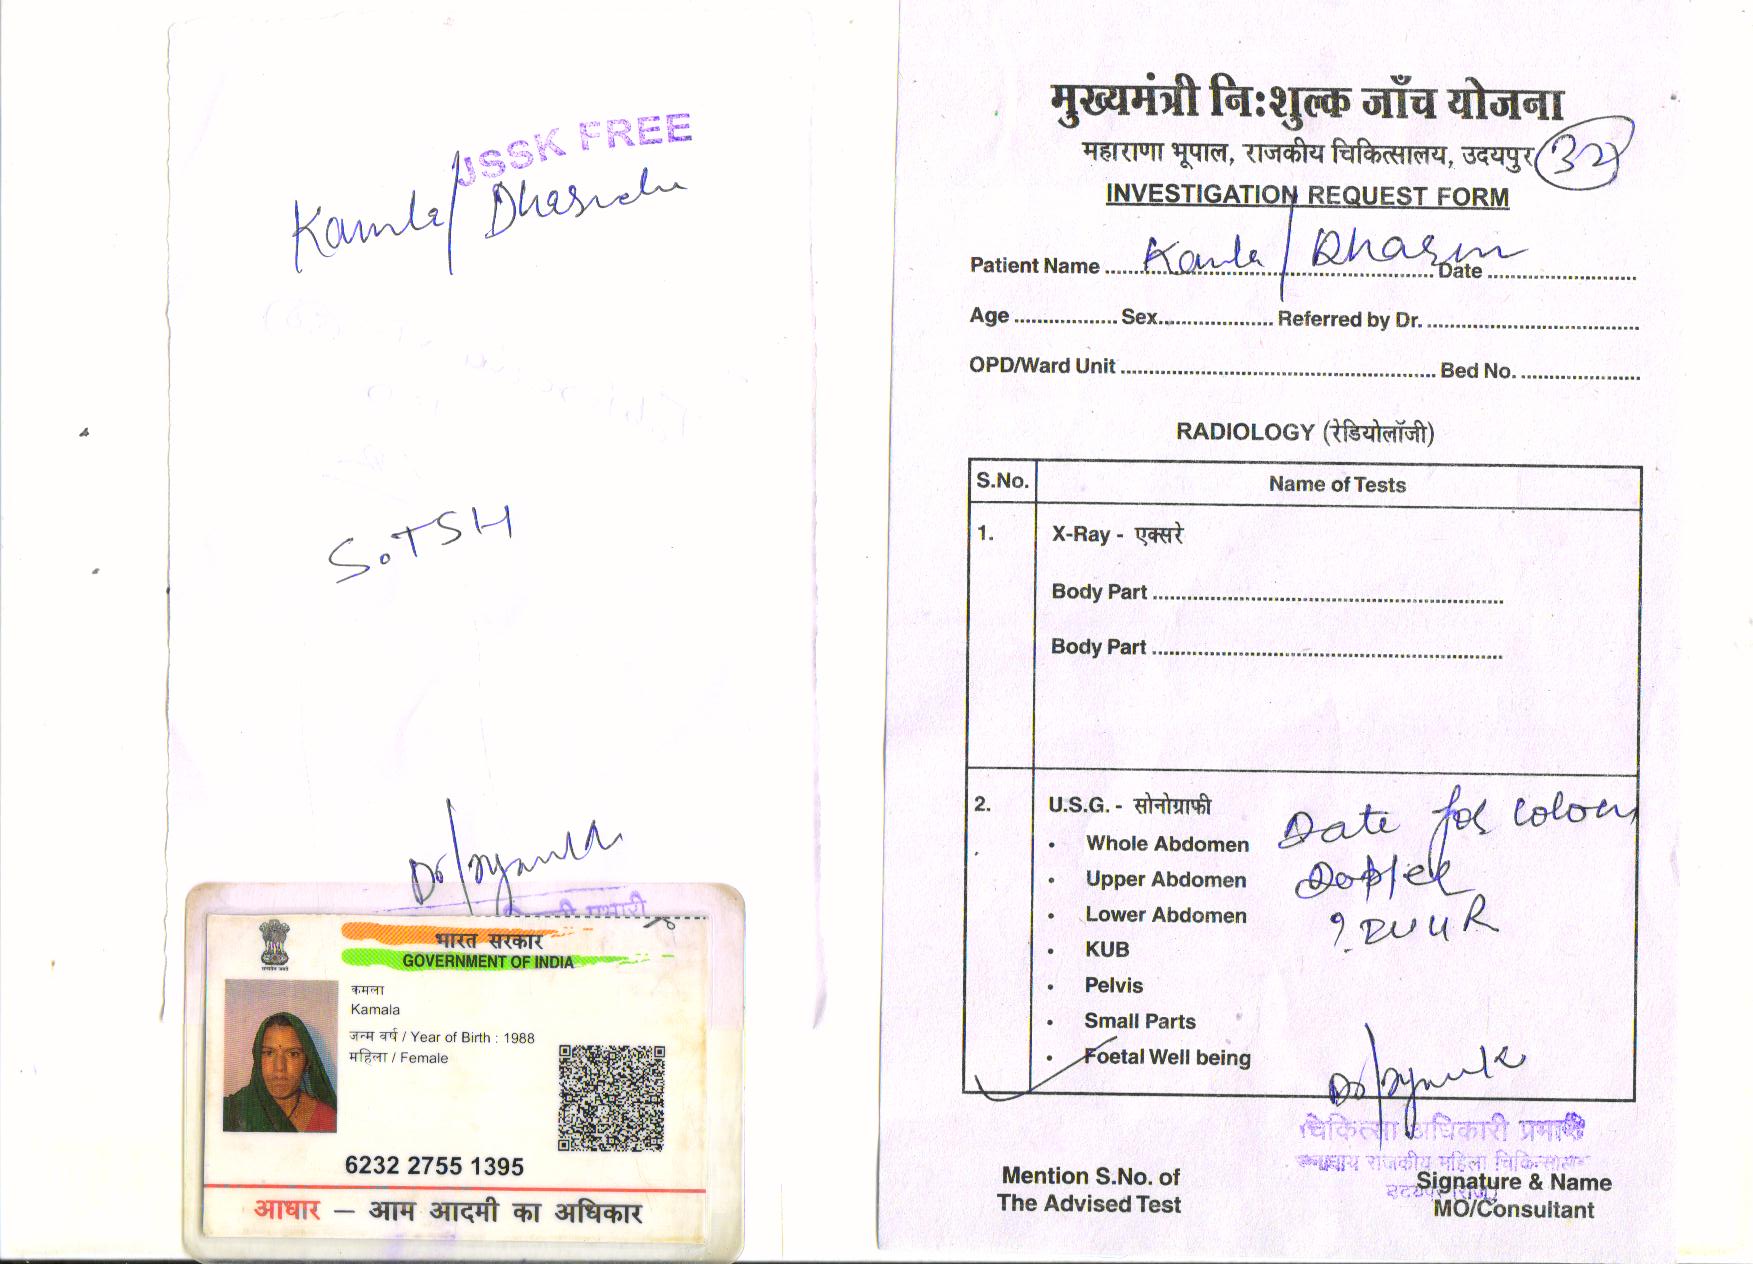 JSSK FREE
Kamla/
S. TSH
भारत सरकार
GOVERNMENT OF INDIA
कमला
Kamala
जन्म वर्ष / Year of Birth : 1988
महिला / Female
6232 2755 1395
आधार – आम आदमी का अधिकार
मुख्यमंत्री नि:शुल्क जाँच योजना
महाराणा भूपाल, राजकीय चिकित्सालय, उदयपुर
INVESTIGATION REQUEST FORM
Patient Name Kamla/ Date
Age Sex Referred by Dr.
OPD/Ward Unit Bed No.
RADIOLOGY (रेडियोलॉजी)
S.No. Name of Tests
1. X-Ray - एक्सरे
Body Part
Body Part
2. U.S.G. - सोनोग्राफी
Date for colour
• Whole Abdomen
• Upper Abdomen
• Lower Abdomen
• KUB
• Pelvis
• Small Parts
• Foetal Well being
चिकित्सा अधिकारी प्रभारी
राजकीय महिला चिकित्सालय
Mention S.No. of
The Advised Test
Signature & Name
MO/Consultant